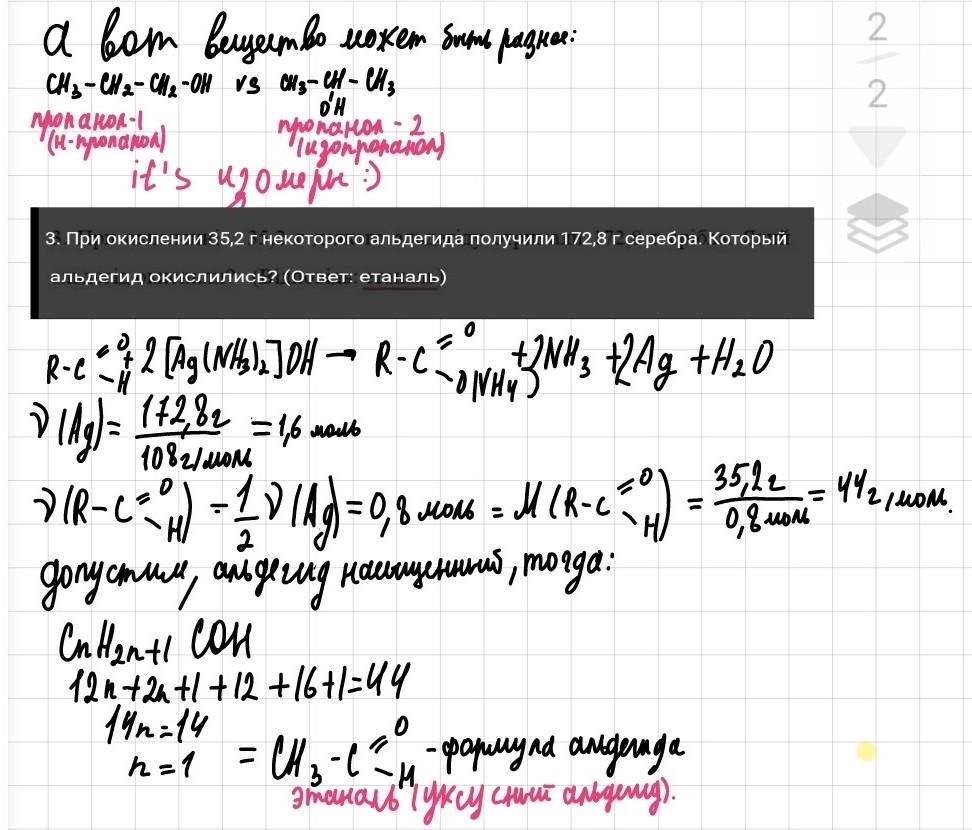 а вот вещество может быть разное:
CH₃-CH₂-CH₂-OH vs CH₃-CH-CH₃
OH
пропанол-1
(н-пропанол)
пропанол-2
(изопропанол)
it's изомеры :)
3. При окислении 35,2 г некоторого альдегида получили 172,8 г серебра. Который
альдегид окислились? (Ответ: етаналь)
R-C=O-H + 2[Ag(NH₃)₂]OH → R-C=O-O(NH₄) + 2NH₃ + 2Ag + H₂O
ν(Ag) = 172,8г / 108г/моль = 1,6 моль
ν(R-C=O-H) = 1/2 ν(Ag) = 0,8 моль = M(R-C=O-H) = 35,2г / 0,8моль = 44г/моль.
допустим, альдегид насыщенный, тогда:
CnH2n+1 COH
12n+2n+1+12+16+1=44
14n=14
n=1 = CH₃-C=O-H - формула альдегида
этаналь (уксусный альдегид).
2
2